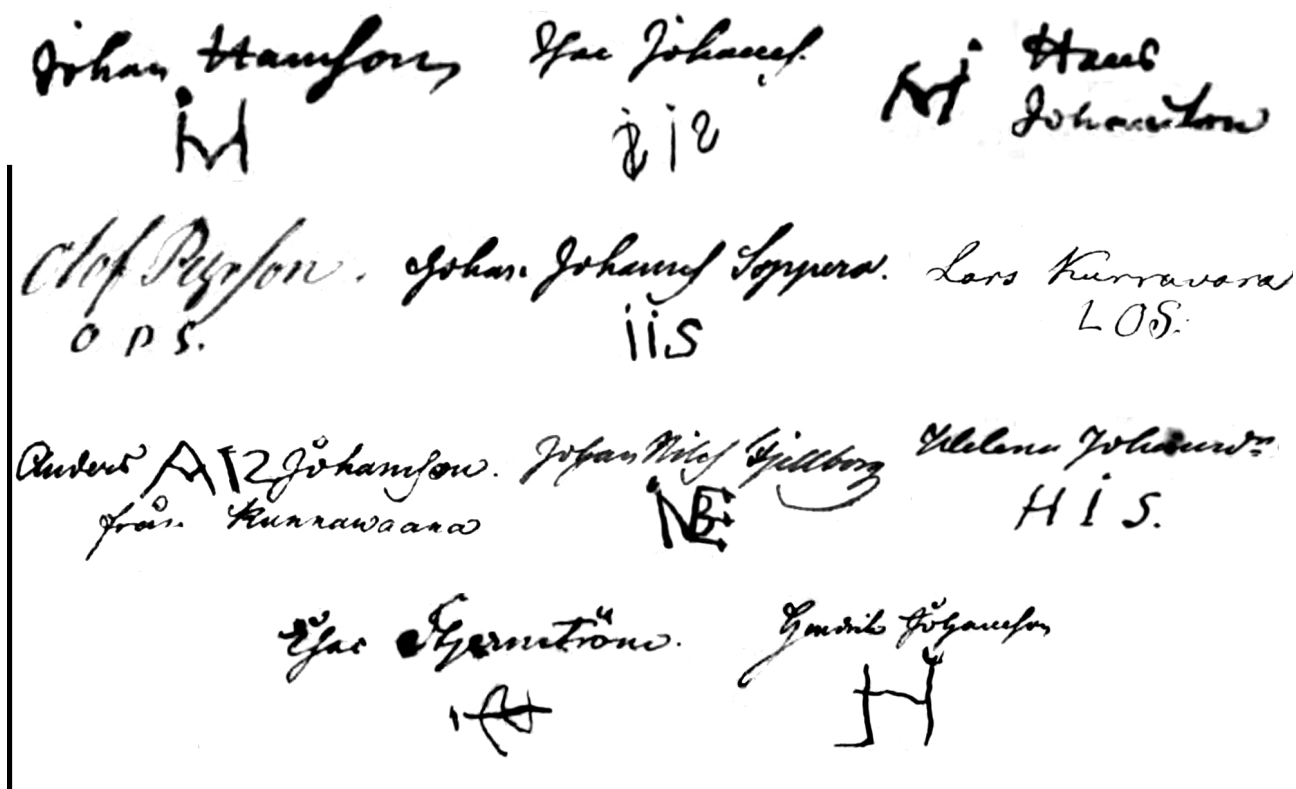 Johan Hansson
Isac Johanss.
Hans
Johansson
iH
i i S
Hi
Olof Pärsson.
Johan Johanss Soppero.
Lars Kurravara
O P S.
i i S
L O S.
Anders AIS Johansson.
från Kurrawaara
Johan Nils Fjellborg
Helena Johansdr
H I S.
Isac Stjernström.
Hendrik Johansson